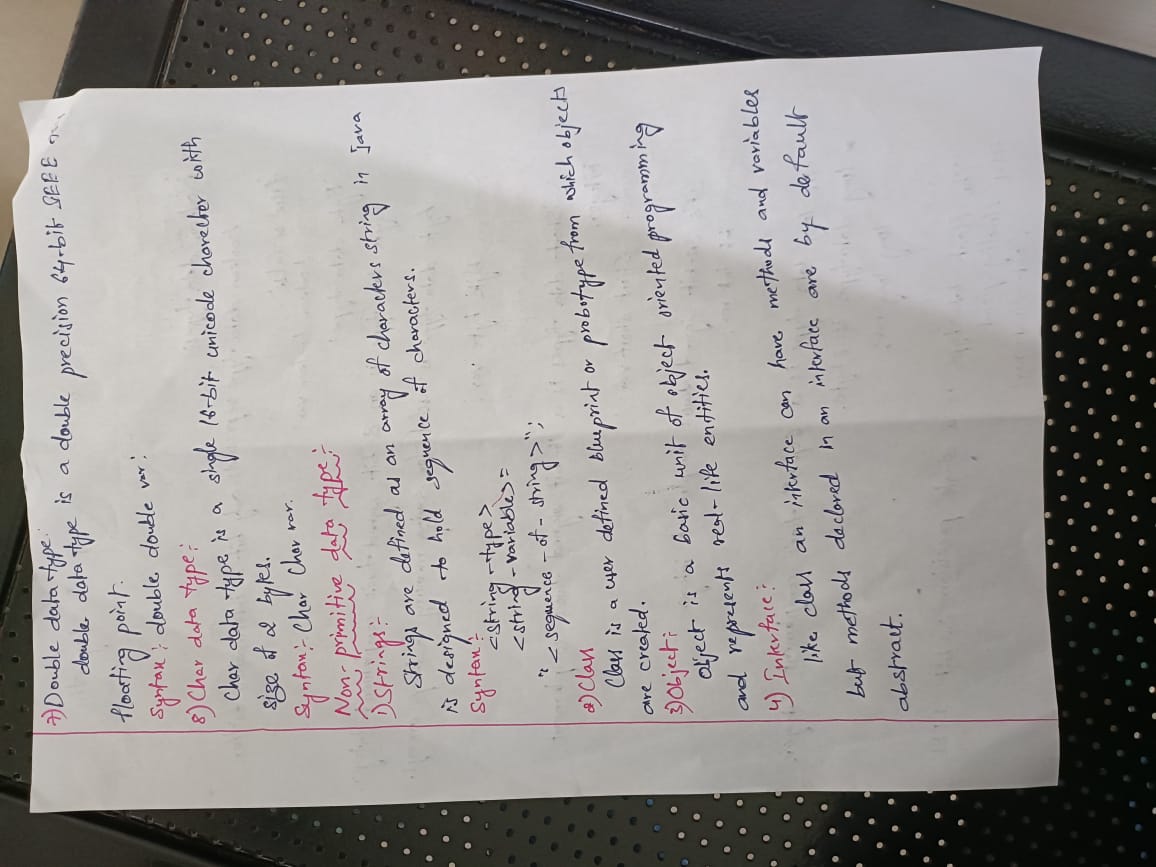 7) Double data type:
double data type is a double precision 64-bit IEEE
floating point.
Syntax: double double var:
8) Char data type:
Char data type is a single 16-bit unicode charecter with
size of 2 bytes.
Syntax: Char Char var.
Non-primitive data type:
1) Strings:-
Strings are defined as an array of characters string in Java
is designed to hold sequence of characters.
Syntax:
<string-type>
<string-variable> =
"<sequence-of-string>";
2) Class
Class is a user defined blueprint or probotype from which objects
are created.
3) Object:
Object is a basic unit of object oriented programming
and represents real-life entities.
4) Interface:
like class an interface can have methods and variables
but methods declared in an interface are by default
abstract.